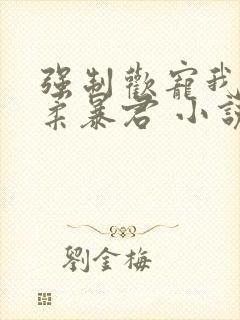 强制歡寵我
柔暴君 小說
劉金梅